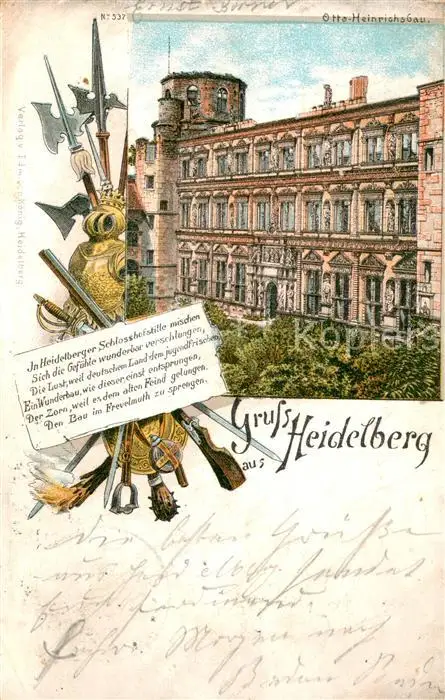 Ernst
No 537
Otto-Heinrichsbau.
Verlag v. Edm. von König, Heidelberg
Jn Heidelberger Schlosshofstille mischen
Sich die Gefühle wunderbar verschlungen,
Die Lust, weil deutschem Land dem jugendfrischen
Ein Wunderbau, wie dieser, einst entsprungen,
Der Zorn, weil es dem alten Feind gelungen,
Den Bau im Frevelmuth zu sprengen.
Gruss
aus Heidelberg
Die besten Grüße
aus Heidelberg sendet
Morgen nach
Baden Baden